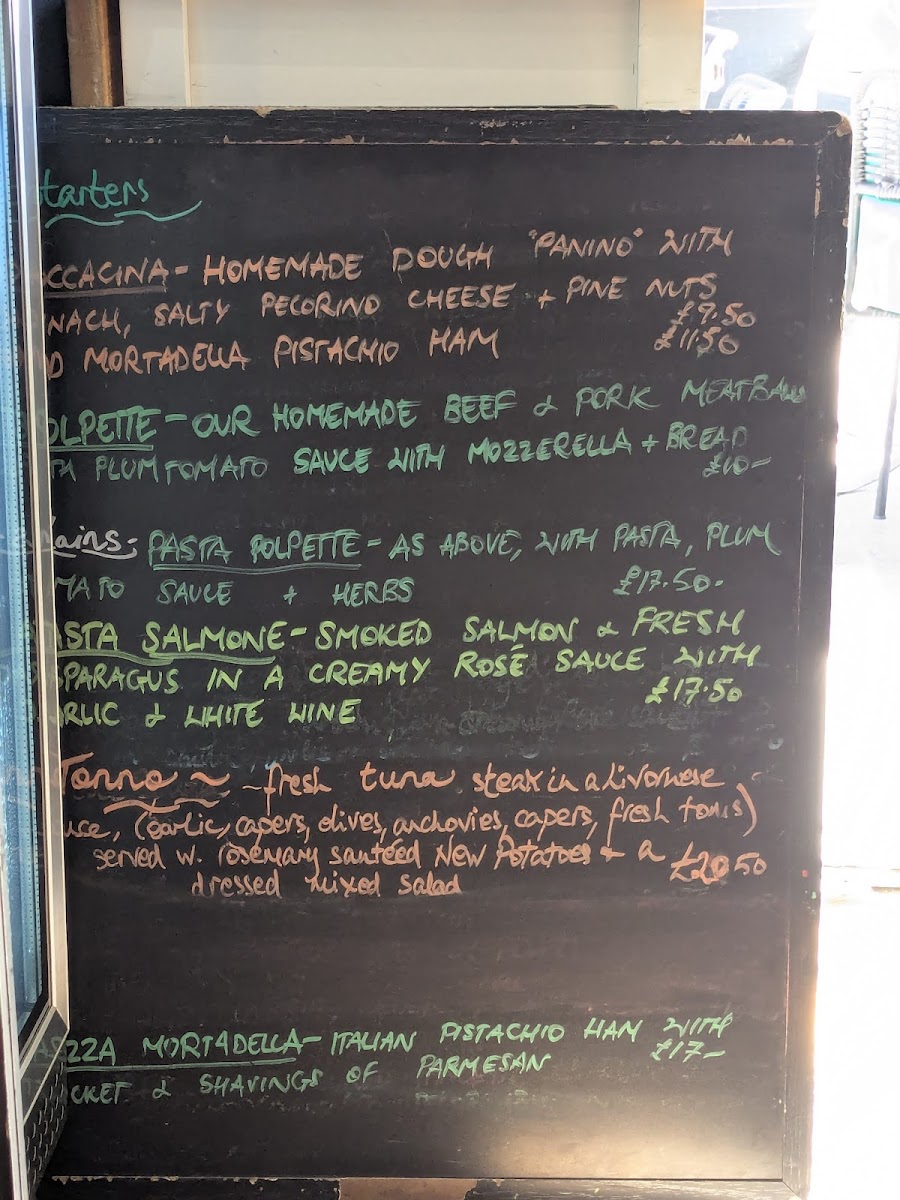 tarters
CCACINA - HOMEMADE DOUGH "PANINO" WITH
NACH, SALTY PECORINO CHEESE + PINE NUTS
£9.50
D MORTADELLA PISTACHIO HAM £11.50
OLPETTE - OUR HOMEMADE BEEF & PORK MEATBALLS
TA PLUM TOMATO SAUCE WITH MOZZERELLA + BREAD
£10-
Mains - PASTA POLPETTE - AS ABOVE, WITH PASTA, PLUM
MATO SAUCE + HERBS £17.50.
ASTA SALMONE - SMOKED SALMON & FRESH
SPARAGUS IN A CREAMY ROSÉ SAUCE WITH
RLIC & WHITE WINE £17.50
Tonno ~ - fresh tuna steak in a Livornese
uce, (garlic, capers, olives, anchovies, capers, fresh toms)
served w. rosemary sautéed New Potatoes + a £20.50
dressed mixed salad
ZZA MORTADELLA - ITALIAN PISTACHIO HAM WITH
CKET & SHAVINGS OF PARMESAN £17-